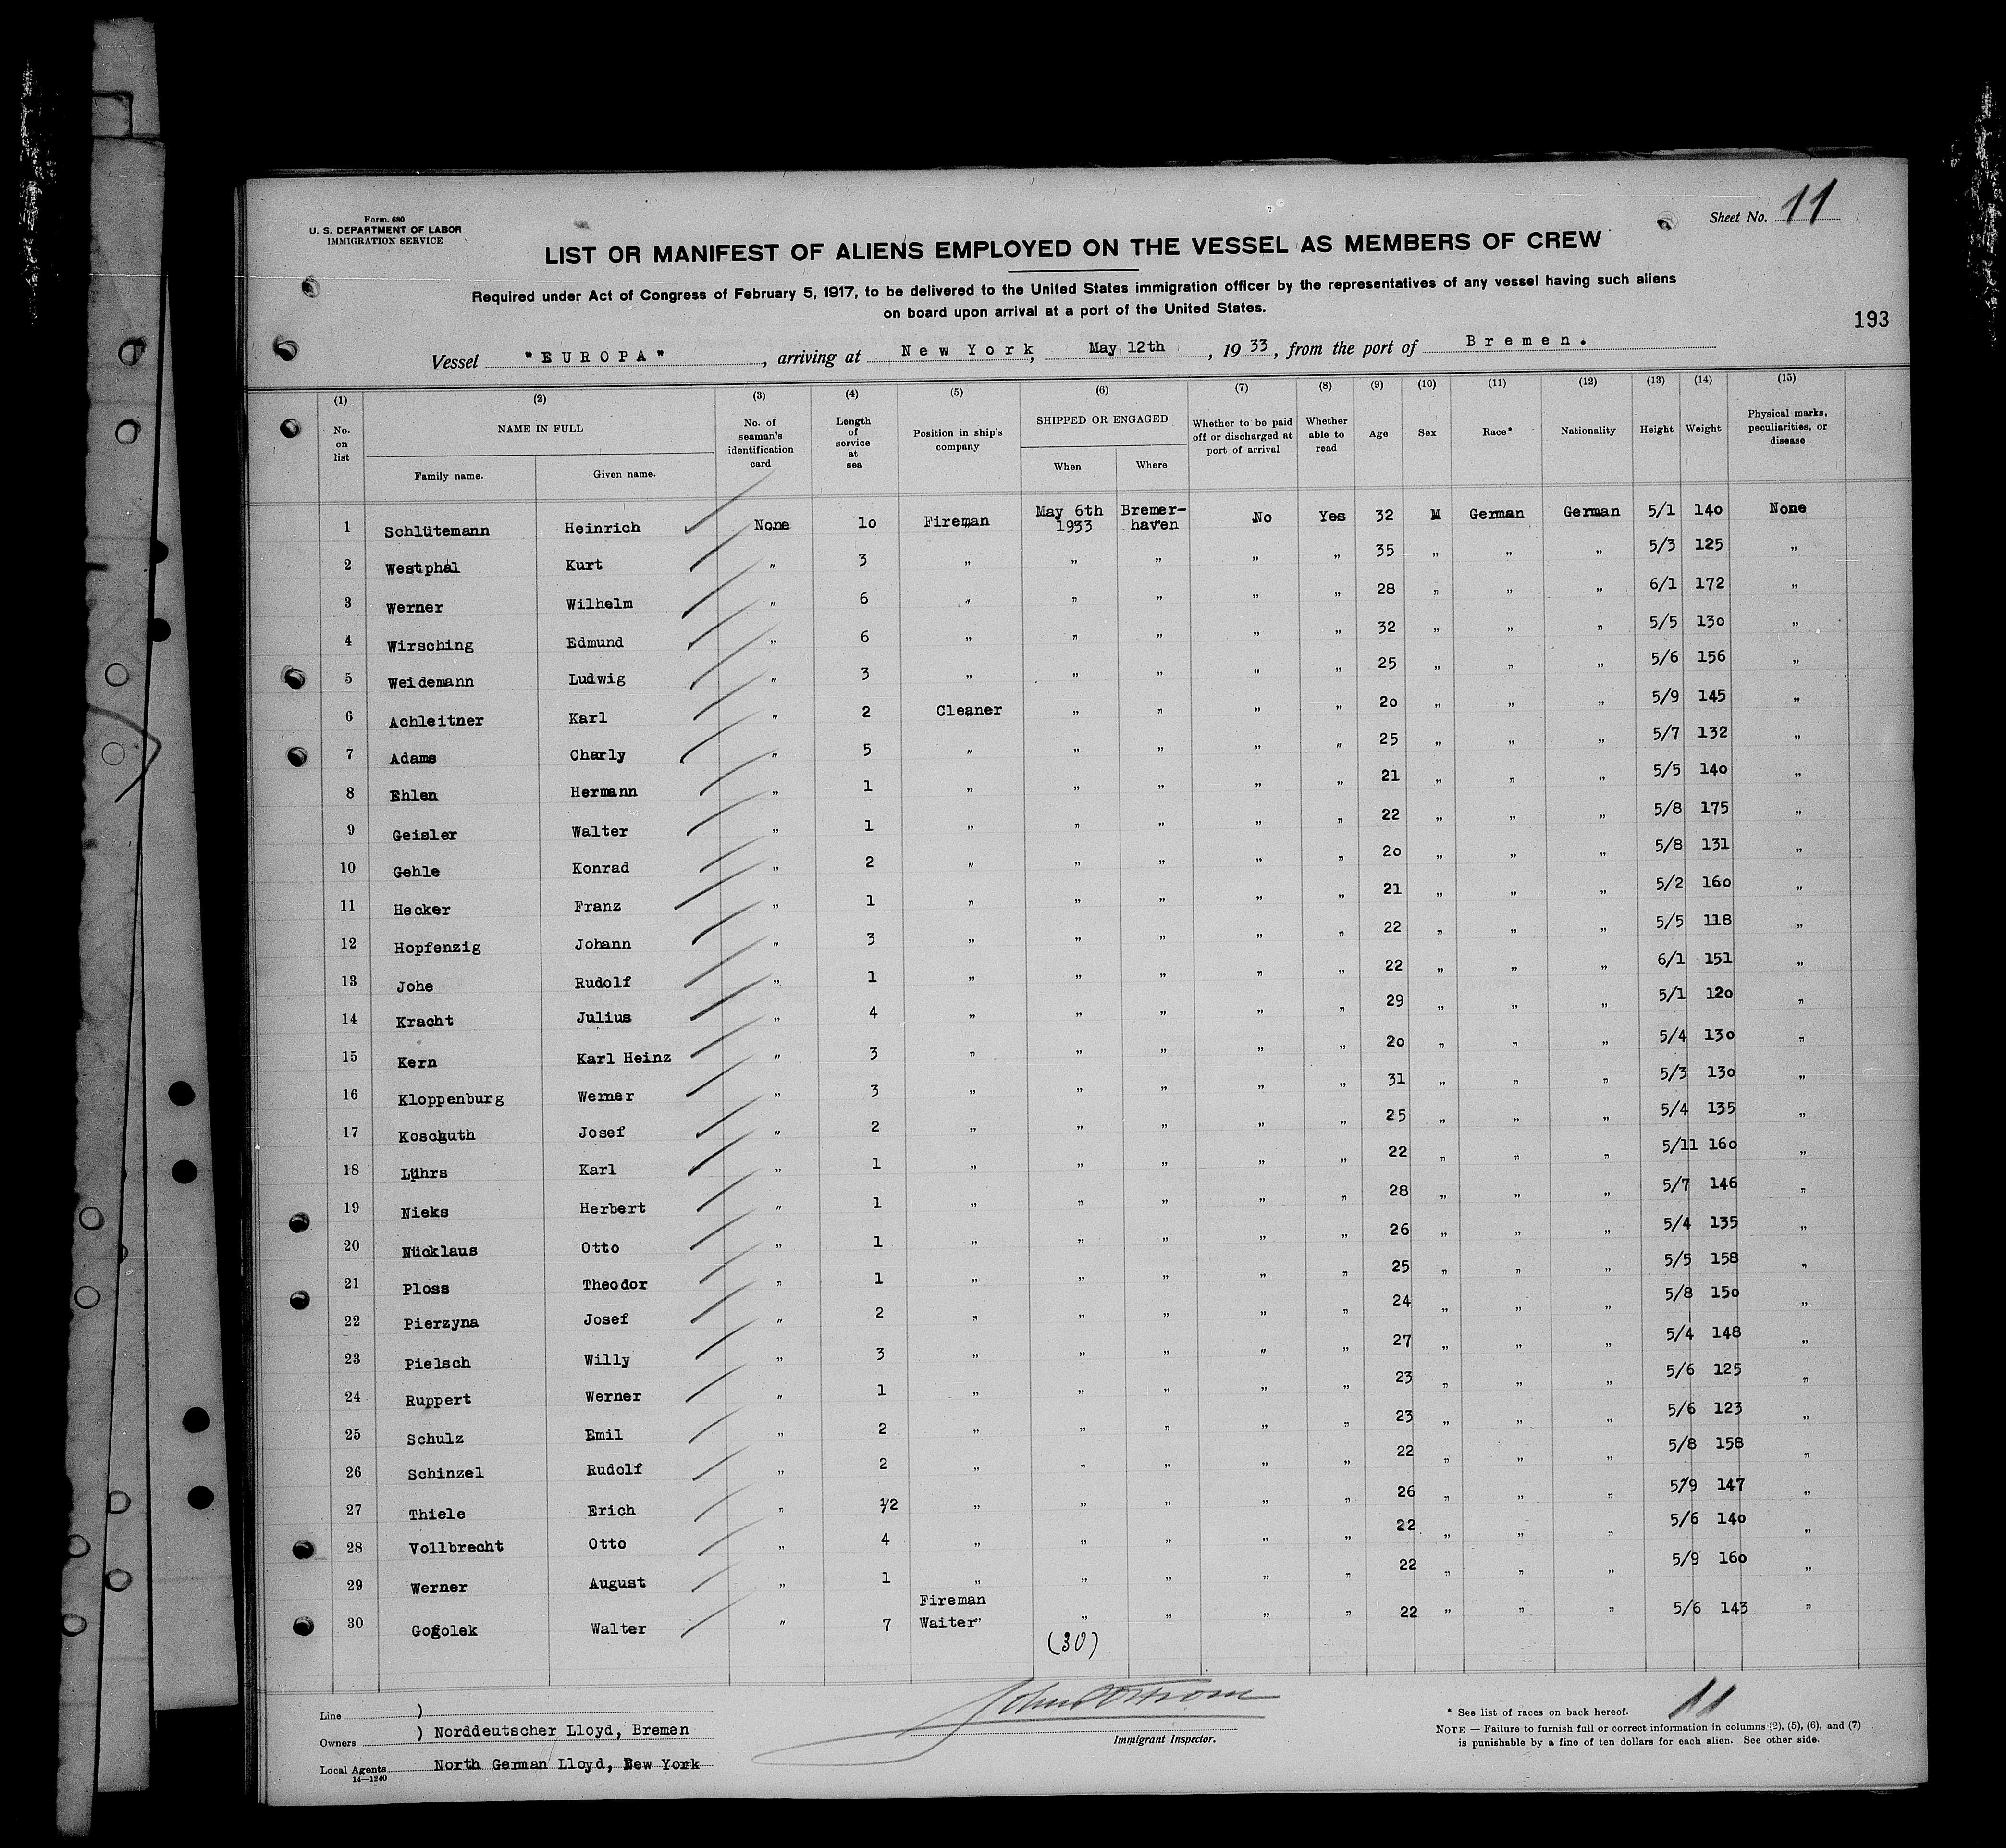 Form. 680
U. S. DEPARTMENT OF LABOR
IMMIGRATION SERVICE
Sheet No. 11
LIST OR MANIFEST OF ALIENS EMPLOYED ON THE VESSEL AS MEMBERS OF CREW
Required under Act of Congress of February 5, 1917, to be delivered to the United States immigration officer by the representatives of any vessel having such aliens
on board upon arrival at a port of the United States.
193
Vessel "EUROPA", arriving at New York, May 12th, 1933, from the port of Bremen.
(1) (2) (3) (4) (5) (6) (7) (8) (9) (10) (11) (12) (13) (14) (15)
No. on list NAME IN FULL Family name. Given name. No. of seaman's identification card Length of service at sea Position in ship's company SHIPPED OR ENGAGED When Where Whether to be paid off or discharged at port of arrival Whether able to read Age Sex Race* Nationality Height Weight Physical marks, peculiarities, or disease
1 Schlütemann Heinrich None 1o Fireman May 6th 1933 Bremer-haven No Yes 32 M German German 5/1 14o None
2 Westphal Kurt " 3 " " " " " 35 " " " 5/3 125 "
3 Werner Wilhelm " 6 " " " " " 28 " " " 6/1 172 "
4 Wirsching Edmund " 6 " " " " " 32 " " " 5/5 13o "
5 Weidemann Ludwig " 3 " " " " " 25 " " " 5/6 156 "
6 Achleitner Karl " 2 Cleaner " " " " 2o " " " 5/9 145 "
7 Adams Charly " 5 " " " " " 25 " " " 5/7 132 "
8 Ehlen Hermann " 1 " " " " " 21 " " " 5/5 14o "
9 Geisler Walter " 1 " " " " " 22 " " " 5/8 175 "
10 Gehle Konrad " 2 " " " " " 2o " " " 5/8 131 "
11 Hecker Franz " 1 " " " " " 21 " " " 5/2 16o "
12 Hopfenzig Johann " 3 " " " " " 22 " " " 5/5 118 "
13 Johe Rudolf " 1 " " " " " 22 " " " 6/1 151 "
14 Kracht Julius " 4 " " " " " 29 " " " 5/1 12o "
15 Kern Karl Heinz " 3 " " " " " 2o " " " 5/4 13o "
16 Kloppenburg Werner " 3 " " " " " 31 " " " 5/3 13o "
17 Koschuth Josef " 2 " " " " " 25 " " " 5/4 135 "
18 Lührs Karl " 1 " " " " " 22 " " " 5/11 16o "
19 Nieks Herbert " 1 " " " " " 28 " " " 5/7 146 "
20 Nücklaus Otto " 1 " " " " " 26 " " " 5/4 135 "
21 Ploss Theodor " 1 " " " " " 25 " " " 5/5 158 "
22 Pierzyna Josef " 2 " " " " " 24 " " " 5/8 15o "
23 Pielsch Willy " 3 " " " " " 27 " " " 5/4 148 "
24 Ruppert Werner " 1 " " " " " 23 " " " 5/6 125 "
25 Schulz Emil " 2 " " " " " 23 " " " 5/6 123 "
26 Schinzel Rudolf " 2 " " " " " 22 " " " 5/8 158 "
27 Thiele Erich " 1/2 " " " " " 26 " " " 5/9 147 "
28 Vollbrecht Otto " 4 " " " " " 22 " " " 5/6 14o "
29 Werner August " 1 " " " " " 22 " " " 5/9 16o "
30 Gogolek Walter " 7 Fireman Waiter " " " " 22 " " " 5/6 143 "
(30)
Line )
Owners ) Norddeutscher Lloyd, Bremen
Local Agents North German Lloyd, New York
14—1240
Immigrant Inspector.
* See list of races on back hereof. 11
NOTE — Failure to furnish full or correct information in columns (2), (5), (6), and (7)
is punishable by a fine of ten dollars for each alien. See other side.